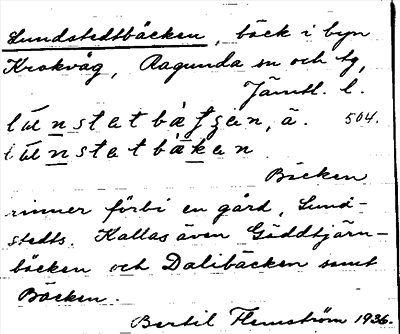 Lundstedtbäcken, bäck i byn
Krokvåg, Ragunda sn och tg,
Jämtl. l.
504.
Bäcken
rinner förbi en gård, Lund-
stedts. Kallas även Gäddtjärn-
bäcken och Dalibäcken samt
Bäcken.
Bertil Flemström 1936.